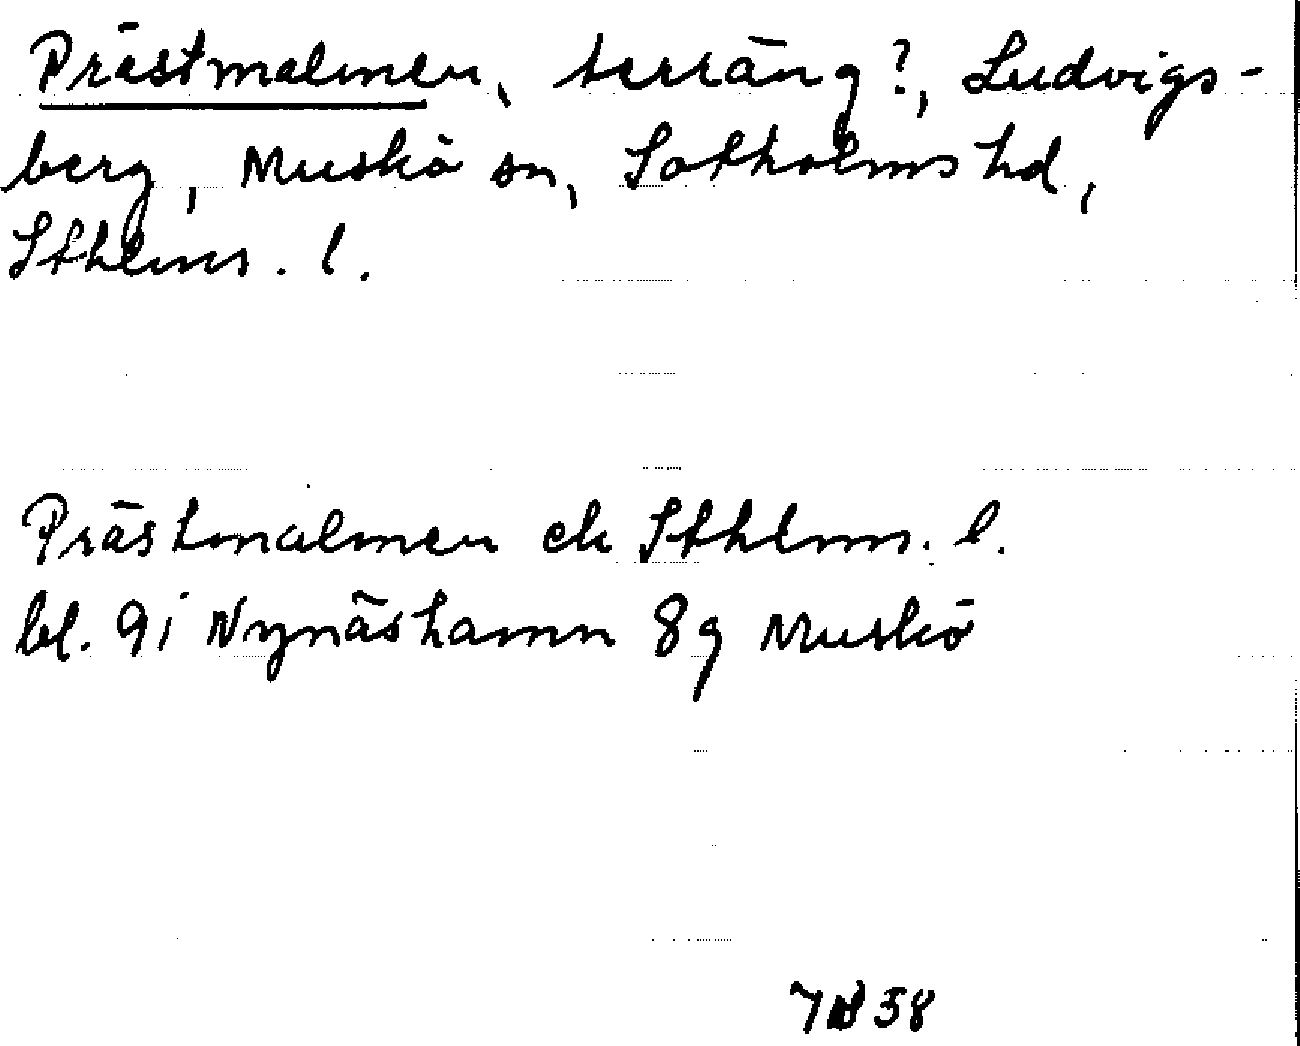 Prästmalmen, terräng?, Ludvigs-
berg, Muskö sn, Sotholms hd,
Sthlms. l.
Prästmalmen ek Sthlms. l.
bl. 9i Nynäshamn 8g Muskö